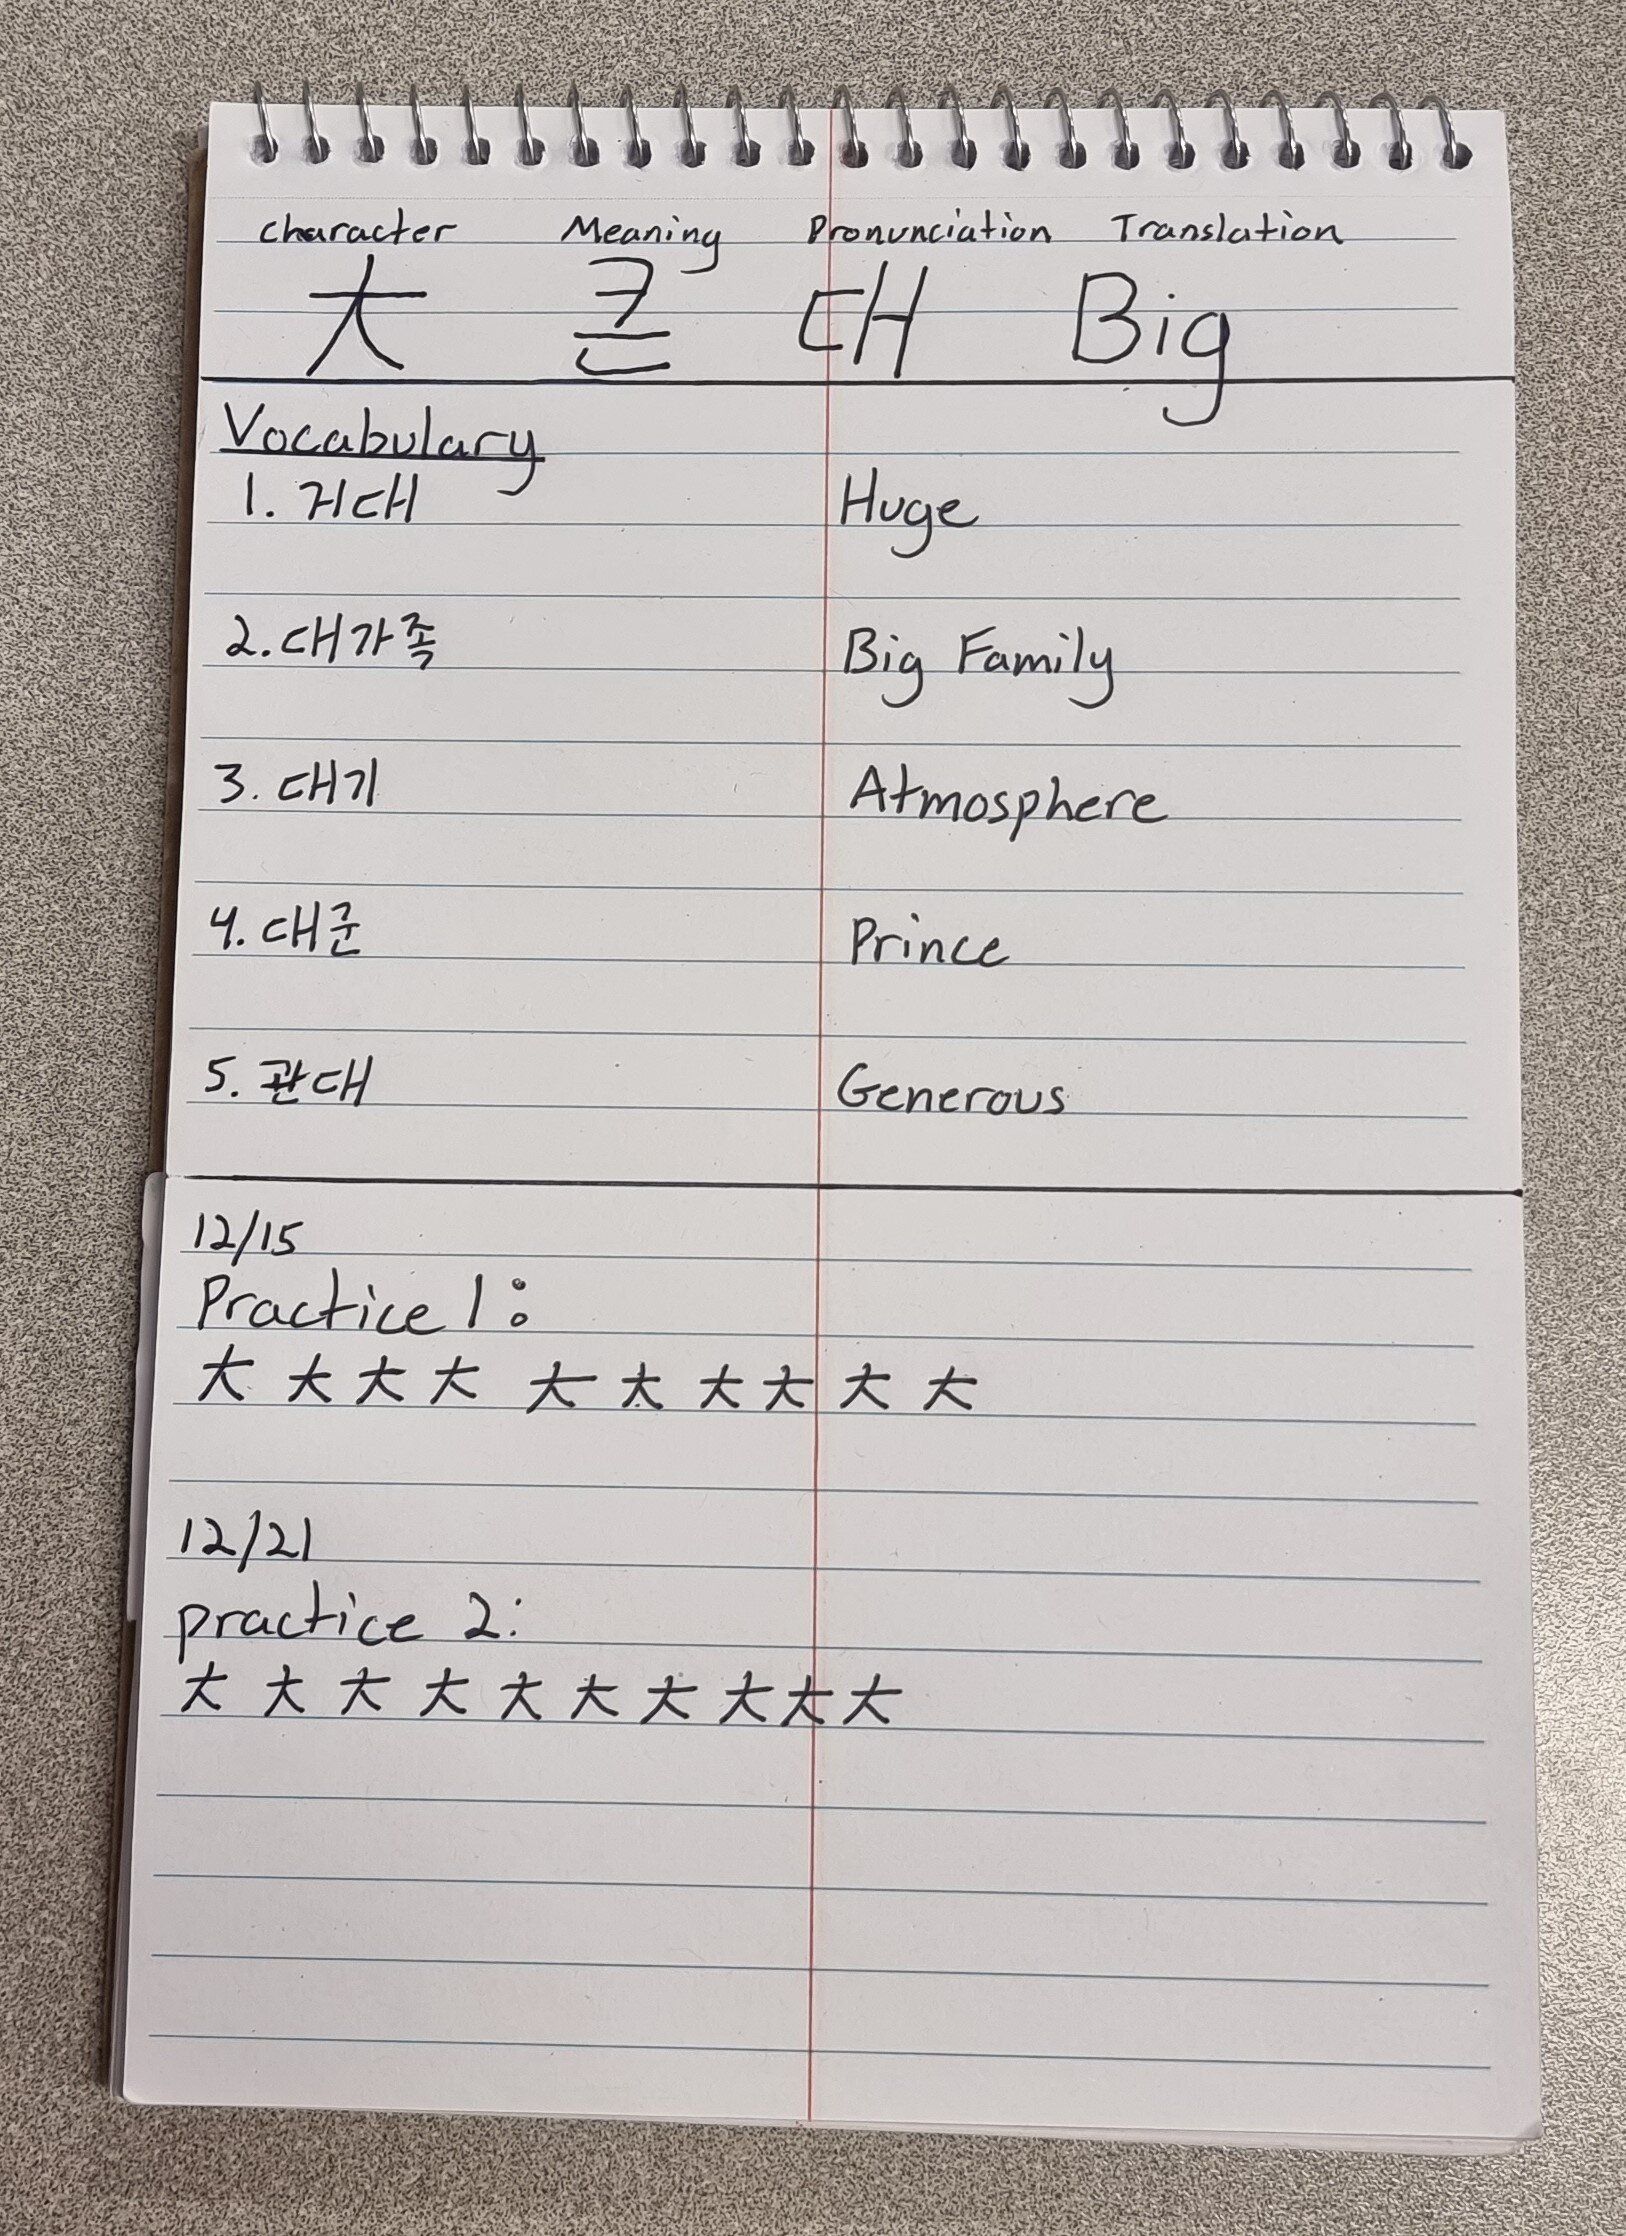 character Meaning Pronunciation Translation
大 큰 대 Big
Vocabulary
1. 거대 Huge
2. 대가족 Big Family
3. 대기 Atmosphere
4. 대군 Prince
5. 관대 Generous
12/15
Practice 1:
大 大 大 大 大 大 大 大 大 大
12/21
practice 2:
大 大 大 大 大 大 大 大 大 大